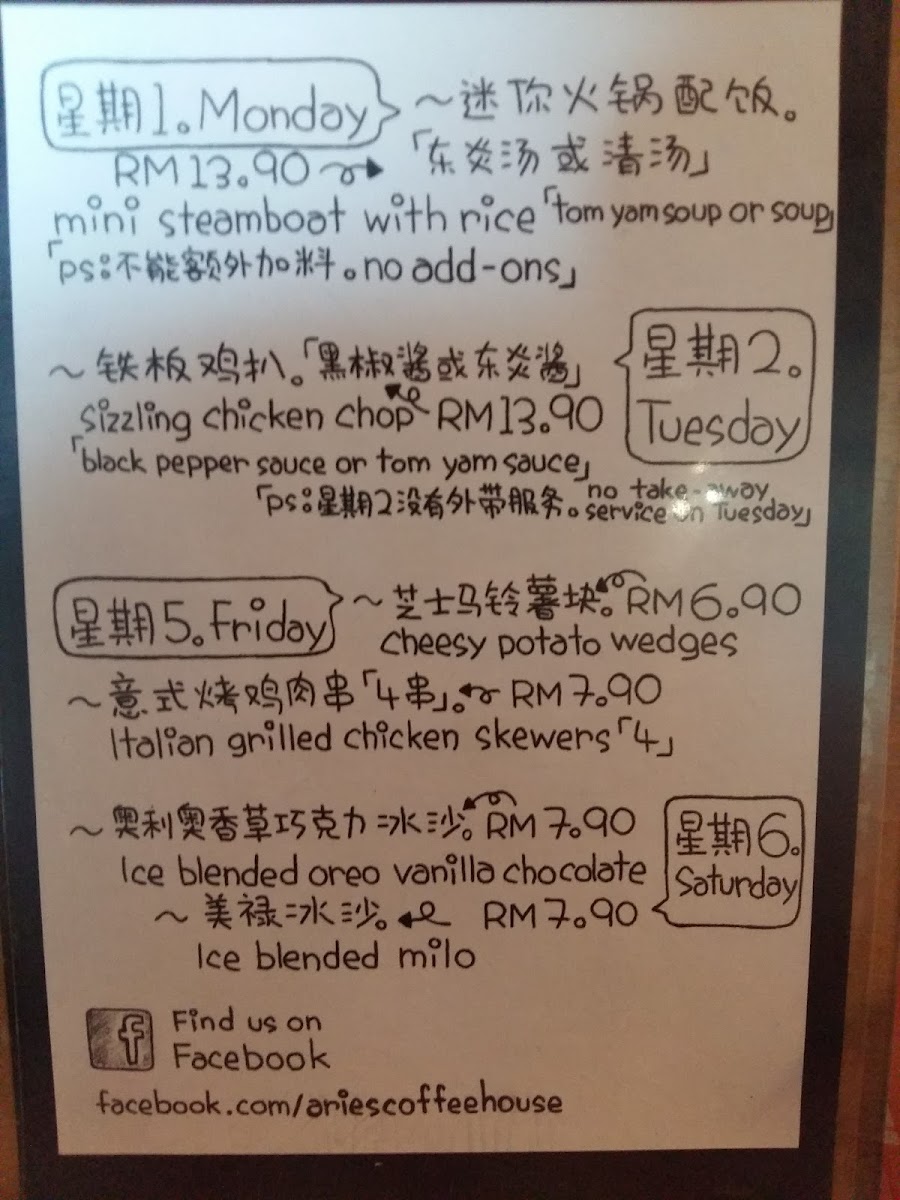 星期1。Monday ～迷你火锅配饭。
RM13.90 「东炎汤或清汤」
mini steamboat with rice「tom yam soup or soup」
「ps:不能额外加料。no add-ons」
～铁板鸡扒。「黑椒酱或东炎酱」
星期2。
Tuesday
sizzling chicken chop RM13.90
「black pepper sauce or tom yam sauce」
「ps:星期2没有外带服务。no take-away
service on Tuesday」
星期5。Friday ～芝士马铃薯块。RM6.90
cheesy potato wedges
～意式烤鸡肉串「4串」。RM7.90
Italian grilled chicken skewers「4」
～奥利奥香草巧克力冰沙。RM7.90
星期6。
Saturday
Ice blended oreo vanilla chocolate
～美禄冰沙。 RM7.90
Ice blended milo
f Find us on
Facebook
facebook.com/ariescoffeehouse